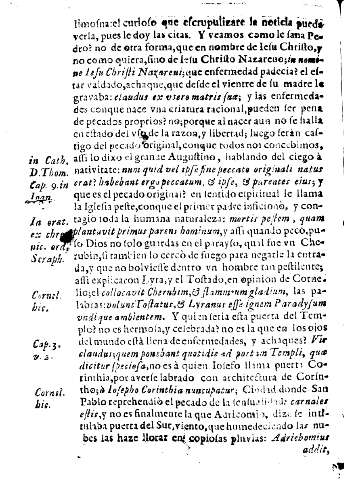 limosna: el curioso que escrupulizare la noticia puede
verla, pues le doy las citas. Y veamos como le sana Pe-
dro? no de otra forma, que en nombre de Iesu Christo, y
no como quiera, sino de Iesu Christo Nazareno; in nomi-
ne Iesu Christi Nazareni; que enfermedad padecia? el es-
tar valdado, achaque, que desde el vientre de su madre le
gravaba: claudus ex vtero matris suæ; y las enfermeda-
des conque nace vna criatura racional, pueden ser pena
de pecados proprios? no; porque al nacer aun no se halla
en estado del vso de la razon, y libertad; luego serán cas-
tigo del pecado original, conque todos nos concebimos,
in Cath. assi lo dixo el grande Augustino, hablando del ciego à
D. Thom. nativitate: nunquid vel ipse sine peccato originali natus
Cap. 9. in erat? habebant ergo peccatum, & ipse, & parentes eius; y
Ioan. que es el pecado original? en sentido espiritual le llama
la Iglesia peste, conque el primer padre inficionò, y con-
In orat. tagiò toda la humana naturaleza: mortis pestem, quam
ex chro plantavit primus parens hominum, y assi quando pecò, pu-
nic. ord. so Dios no solo guardas en el parayso, qual fue vn Che-
Seraph. rubin, si tambien lo cercò de fuego para negarle la entra-
da, y que no bolviesse dentro vn hombre tan pestilente;
assi explicaron Lyra, y el Tostado, en opinion de Corne-
Cornel. lio; el collocavit Cherubim, & flammeum gladium, las pa-
hic. labras: volunt Tostatus, & Lyranus esse ignem Paradysum
vndique ambientem. Y quien seria esta puerta del Tem-
plo? no es hermosa, y celebrada? no es la que en los ojos
Cap. 3. del mundo està llena de enfermedades, y achaques? Vir
v. 2. claudus; quem ponebant quotidie ad portam Templi, quæ
dicitur speciosa, no es à quien Iosefo llama puerta Co-
rinthia, por averse labrado con architectura de Corin-
Cornel. tho; à Iosepho Corinthia nuncupatur; Ciudad donde San
hic. Pablo reprehendiò el pecado de la sensualidad: carnales
estis, y no es finalmente la que Adricomio, dize se inti-
tulaba puerta del Sur, viento, que humedeciendo las nu-
bes las haze llorar en copiosas pluvias: Adrichomius
addit,